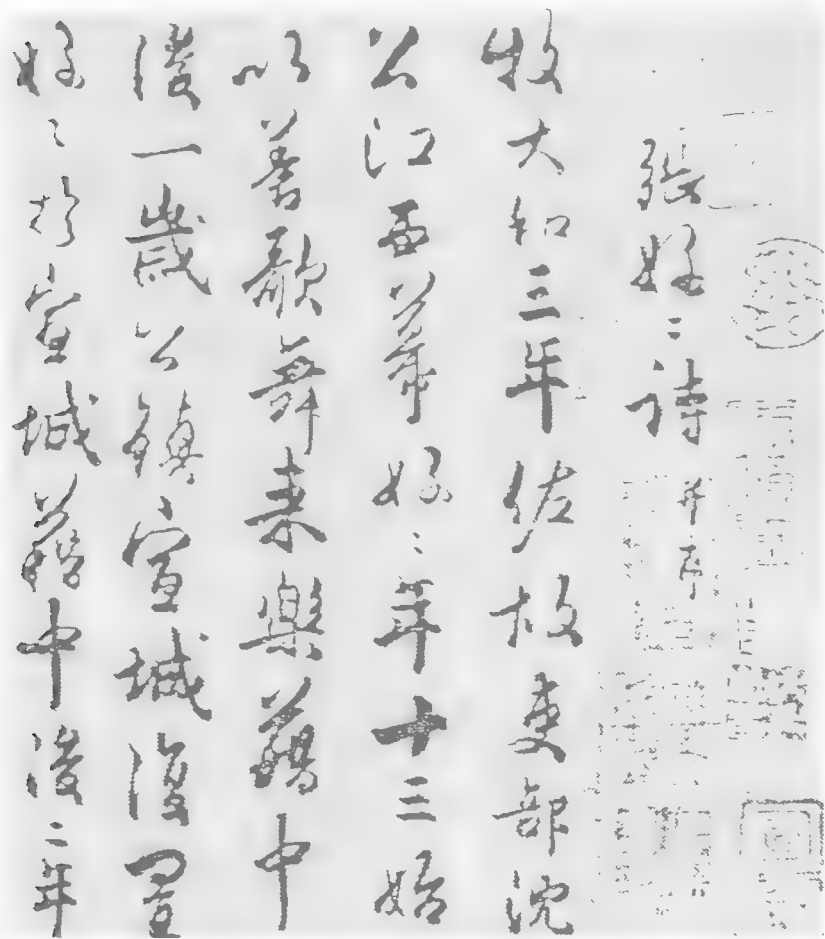 張好〻詩并序
牧大和三年佐故吏部沈
公江西幕好〻年十三始
以善歌舞來樂籍中
後一歲公鎮宣城復置
好〻於宣城籍中後二年